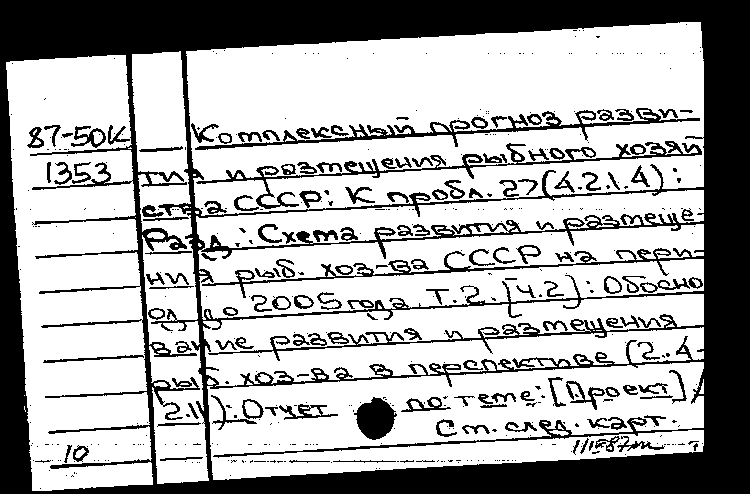 87-50К Комплексный прогноз разви-
1353 тия и размещения рыбного хозяй
ства СССР: К пробл. 27(4.2.1.4):
Разд.: Схема развития и размеще-
ния рыб. хоз-ва СССР на пери-
од до 2005 года. Т.2. [Ч.2]: Обосно
вание развития и размещения
рыб. хоз-ва в перспективе (2.4-
2.11): Отчет по теме: [Проект] /
См. след. карт.
10